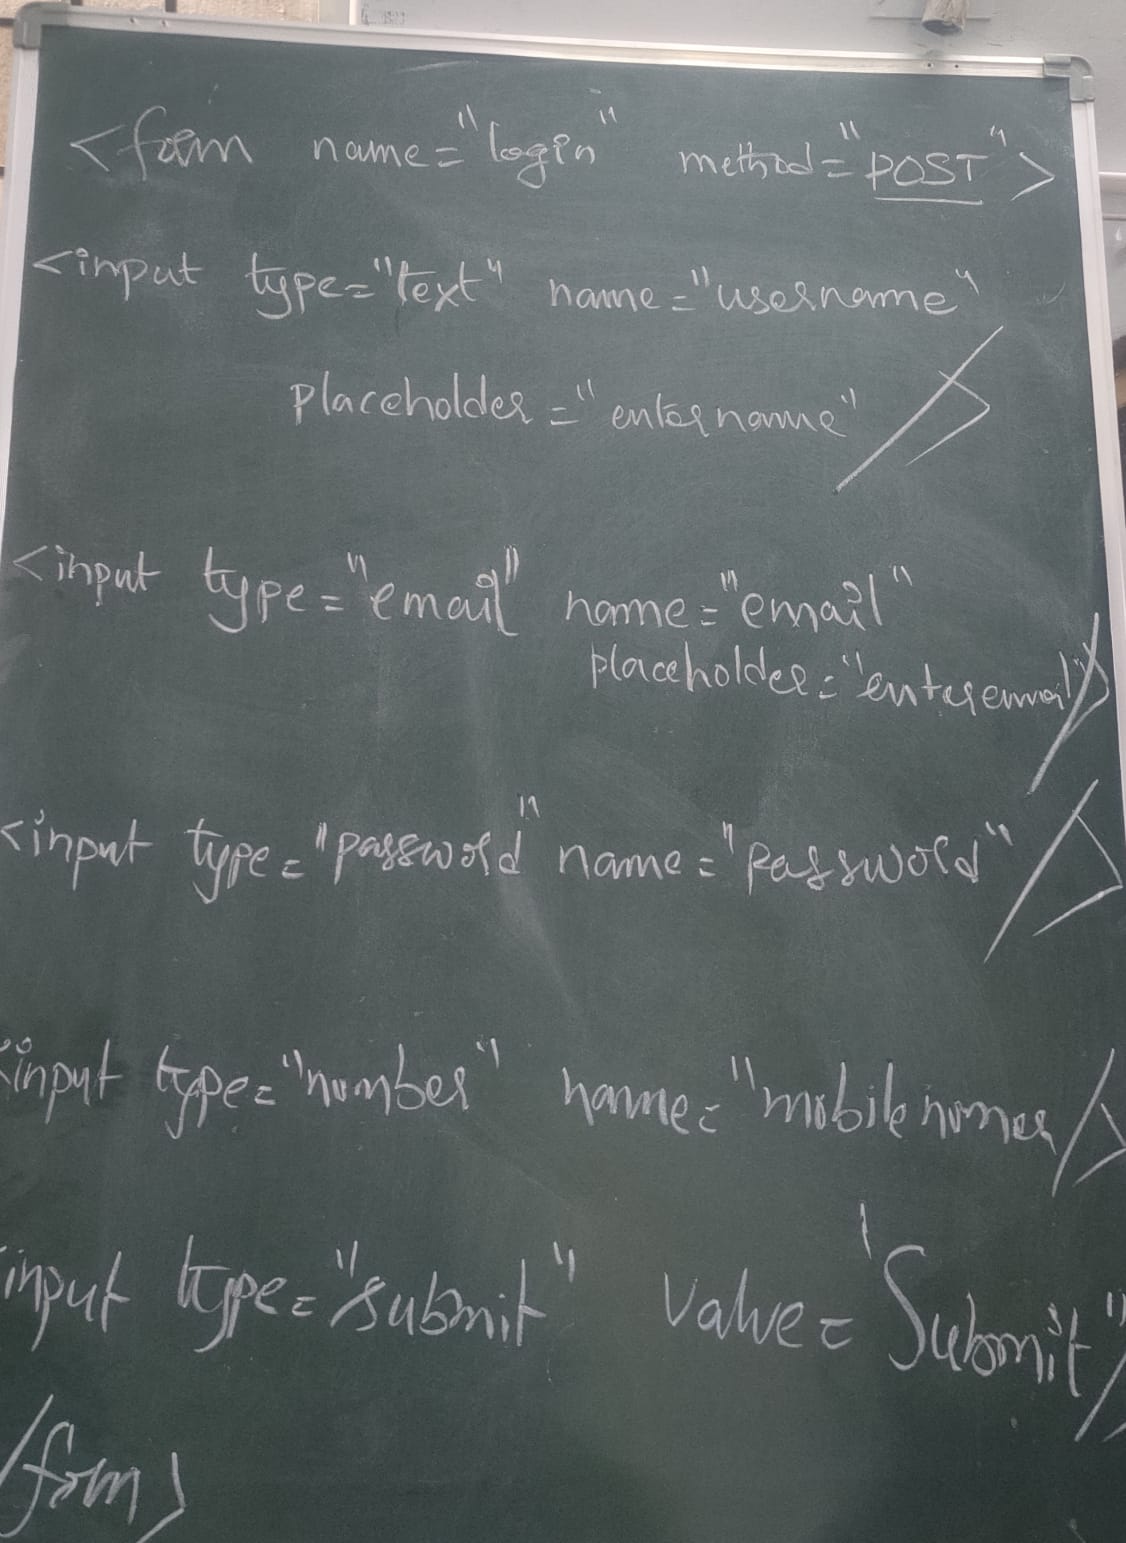 <form name="login" method="POST">
<input type="text" name="username"
placeholder="enter name"/>
<input type="email" name="email"
placeholder="enter email"/>
<input type="password" name="password"/>
<input type="number" name="mobile numer/>
input type="submit" value='Submit"/>
/form>